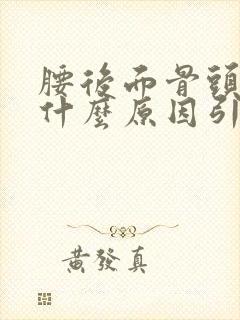 腰後面骨頭
什麼原因引
黃發真